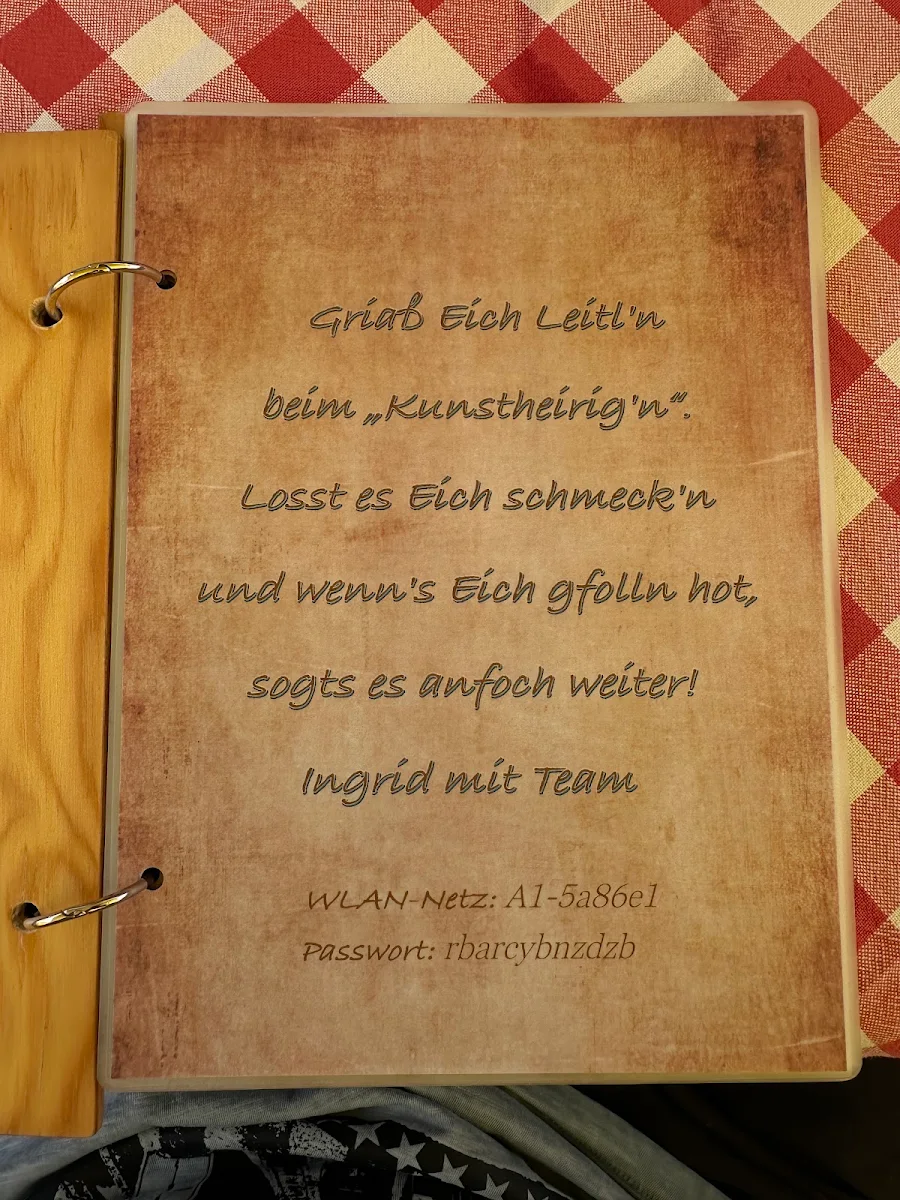 Griaß Eich Leitl'n
beim „Kunstheirig'n“.
Losst es Eich schmeck'n
und wenn's Eich gfolln hot,
sogts es anfoch weiter!
Ingrid mit Team
WLAN-Netz: A1-5a86e1
Passwort: rbarcybnzdzb